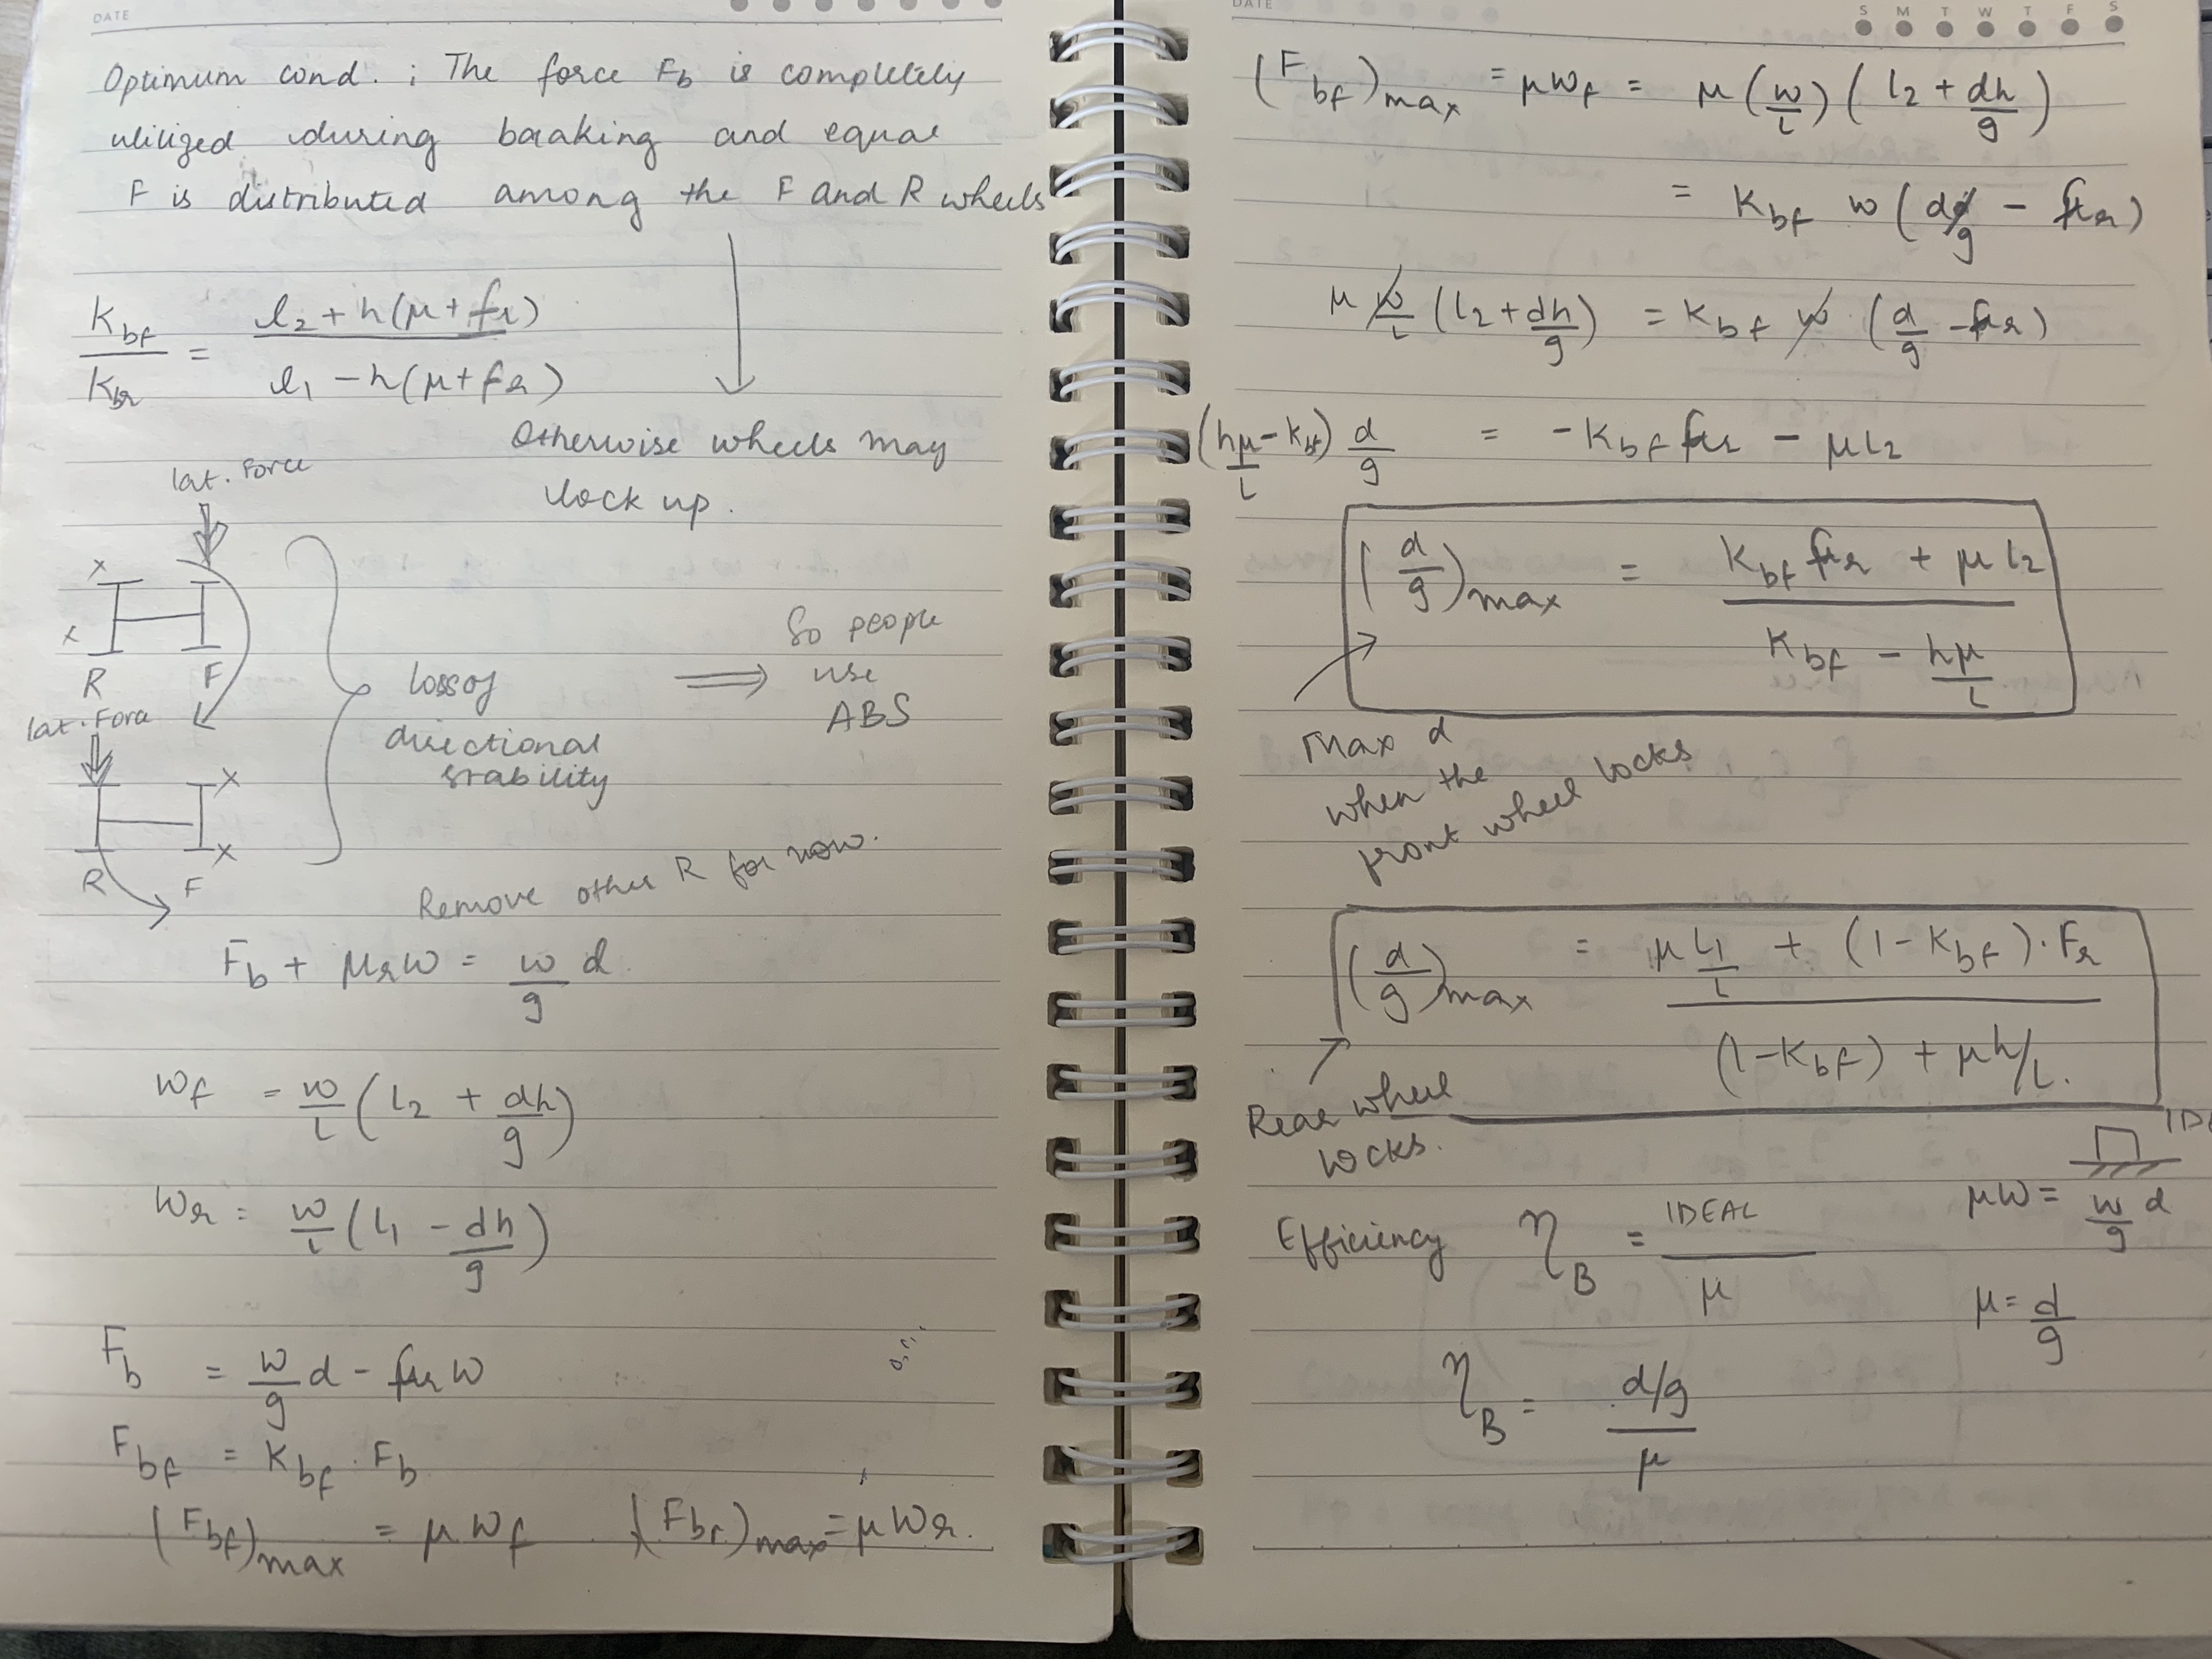 DATE
Optimum cond. ; The force Fb is completely
utilized during braaking and equal
F is distributed among the F and R wheels
Kbf / Kbr = l2 + h(μ + fr) / l1 - h(μ + fr)
Otherwise wheels may
lock up.
lat. Force
x
x
R F
lat. Force
x
x
R F
loss of
directional
stability
⟹ So people
use
ABS
Remove other R for now.
Fb + μrW = w/g d
Wf = w/L (L2 + dh/g)
Wr = w/L (L1 - dh/g)
Fb = w/g d - fr W
Fbf = Kbf . Fb
(Fbf)max = μ Wf (Fbr)max = μ Wr.
DATE
S M T W T F S
(Fbf)max = μWf = μ (w/L) (L2 + dh/g)
= Kbf W (d/g - fr)
μ W/L (L2 + dh/g) = Kbf W (d/g - fr)
(hμ/L - Kbf) d/g = - Kbf fr - μL2
(d/g)max = Kbf fr + μ L2 / Kbf - hμ/L
Max d
when the
front wheel locks
(d/g)max = μ L1/L + (1 - Kbf) . Fr / (1-Kbf) + μh/L.
Rear wheel
locks.
μW = w/g d
Efficiency ηB = IDEAL / μ
μ = d/g
ηB = d/g / μ